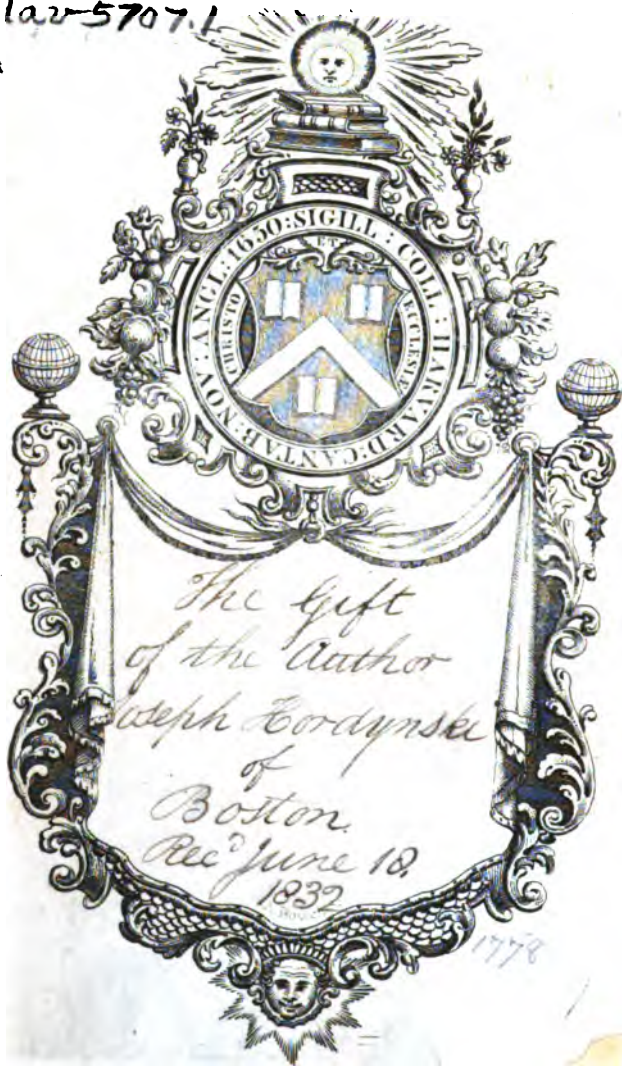 lav-5707.1
SIGILL : COLL : HARVARD : CANTAB : NOV : ANGL : 1650 :
ET
CHRISTO
ECCLESIÆ
The Gift
of the Author
Joseph Hordynski
of
Boston.
Rec'd June 18.
1832
1778